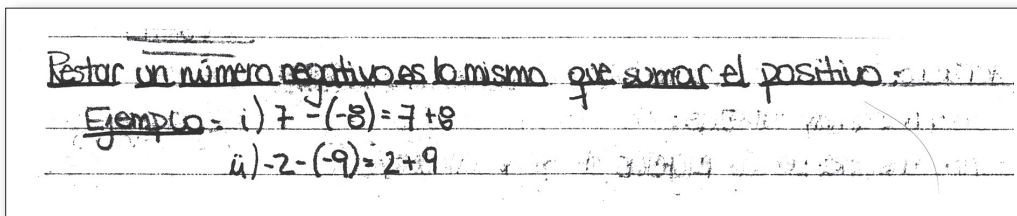 Restar un número negativo es lo mismo que sumar el positivo.
Ejemplo: i) 7 - (-8) = 7 + 8
ii) -2 - (-9) = 2 + 9